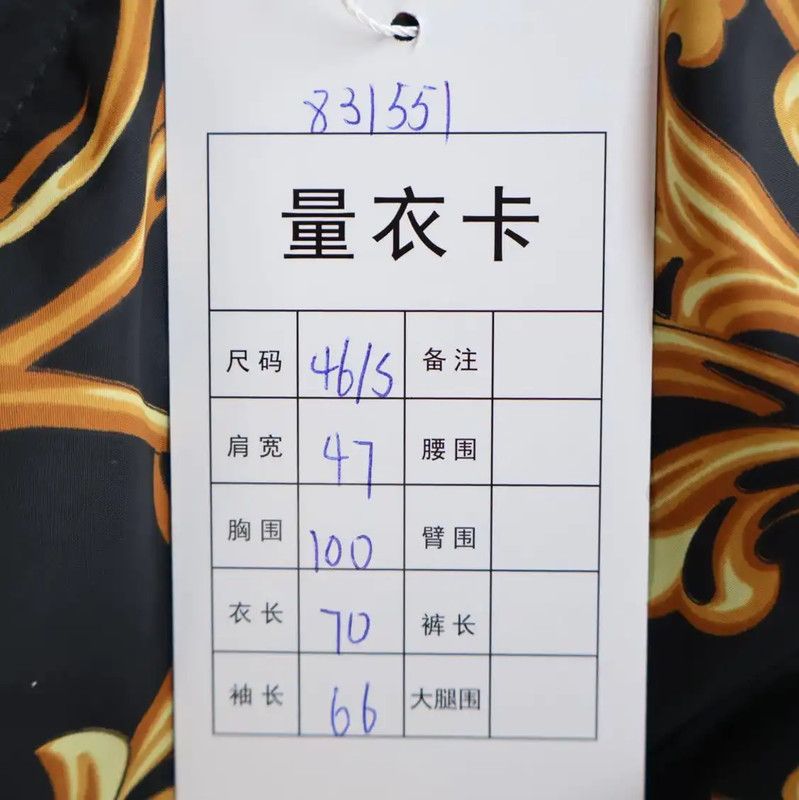 831551
量衣卡
尺码 46/S 备注
肩宽 47 腰围
胸围 100 臂围
衣长 70 裤长
袖长 66 大腿围